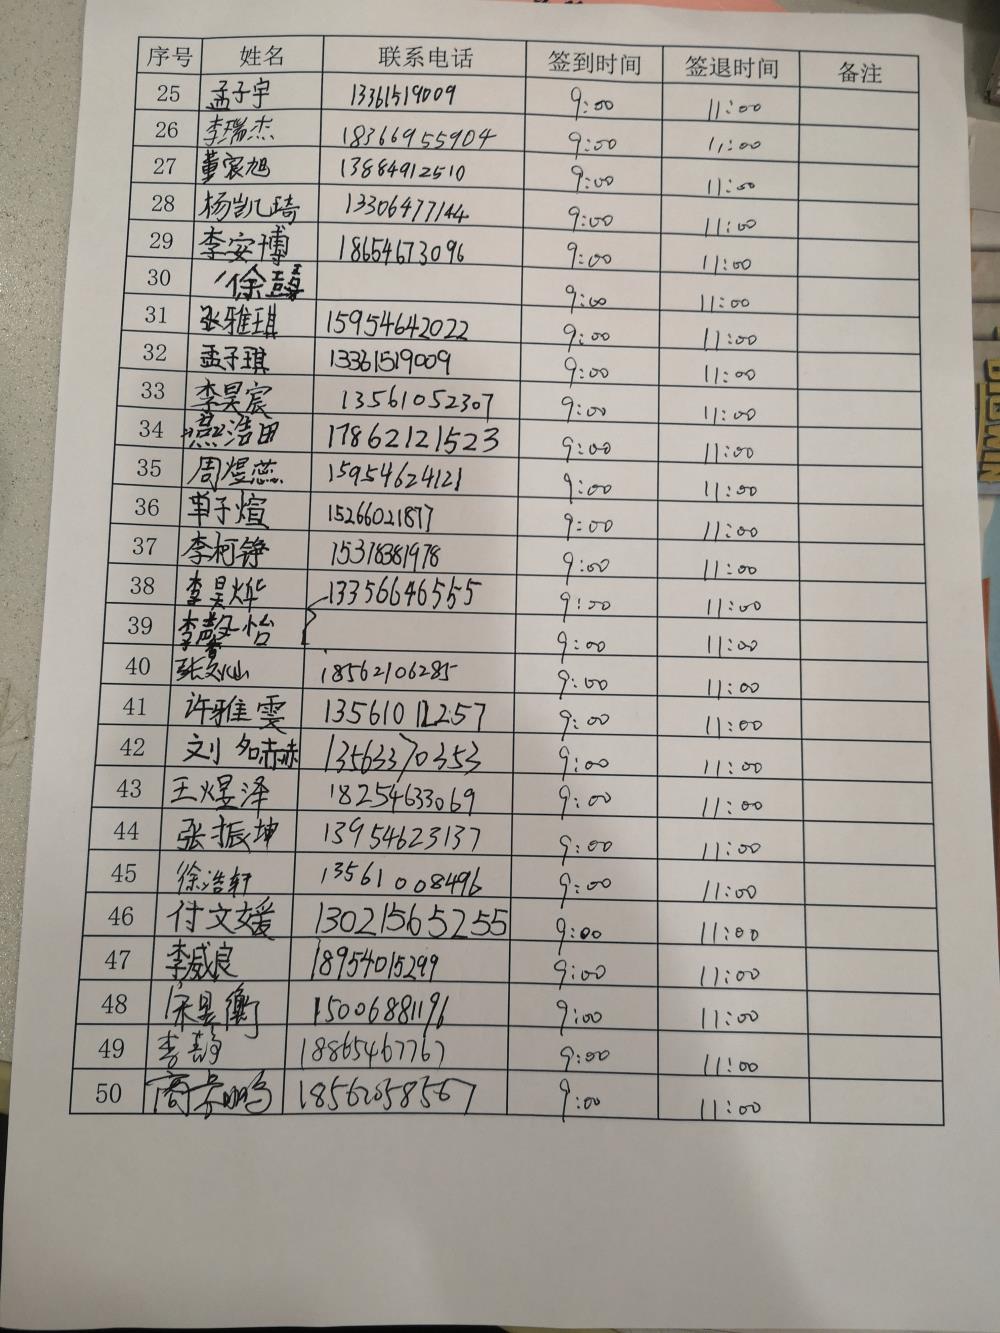 序号 姓名 联系电话 签到时间 签退时间 备注
25 孟子宇 13361519009 9:00 11:00
26 李瑞杰 18366955904 9:00 11:00
27 董宸旭 13884912510 9:00 11:00
28 杨凯琦 13306477144 9:00 11:00
29 李安博 18654673096 9:00 11:00
30 徐 9:00 11:00
31 张雅琪 15954642022 9:00 11:00
32 孟子琪 13361519009 9:00 11:00
33 李昊宸 13561052307 9:00 11:00
34 燕浩田 17862121523 9:00 11:00
35 周煜蕊 15954624121 9:00 11:00
36 单子煊 15266021877 9:00 11:00
37 李柯铮 15318381978 9:00 11:00
38 李昊烨 13356646555 9:00 11:00
39 李馨怡 9:00 11:00
40 张 18562106285 9:00 11:00
41 许雅雯 13561011257 9:00 11:00
42 刘 13563370353 9:00 11:00
43 王煜泽 18254633069 9:00 11:00
44 张振坤 13954623137 9:00 11:00
45 徐浩轩 13561008496 9:00 11:00
46 付文媛 13021565255 9:00 11:00
47 李威良 18954015299 9:00 11:00
48 宋昱衡 15006881196 9:00 11:00
49 李静 18865467767 9:00 11:00
50 商 鸣 18562058567 9:00 11:00